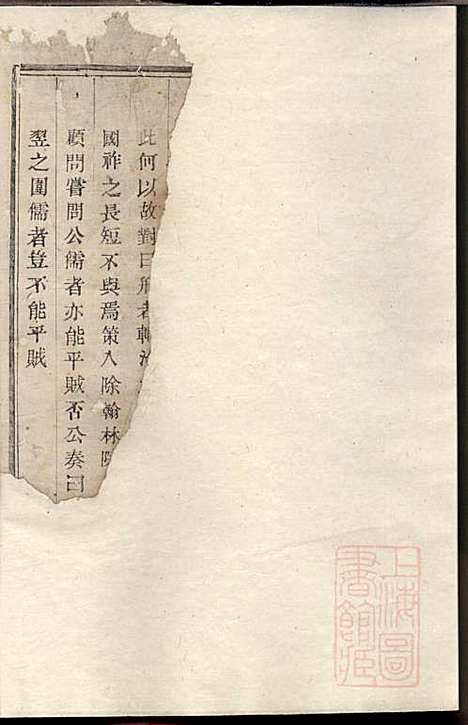 此何以故對曰刑者輔治
國祚之長短不與焉策入除翰林院
顧問嘗問公儒者亦能平賊否公奏曰
翌之圍儒者豈不能平賊
上海圖
書館藏